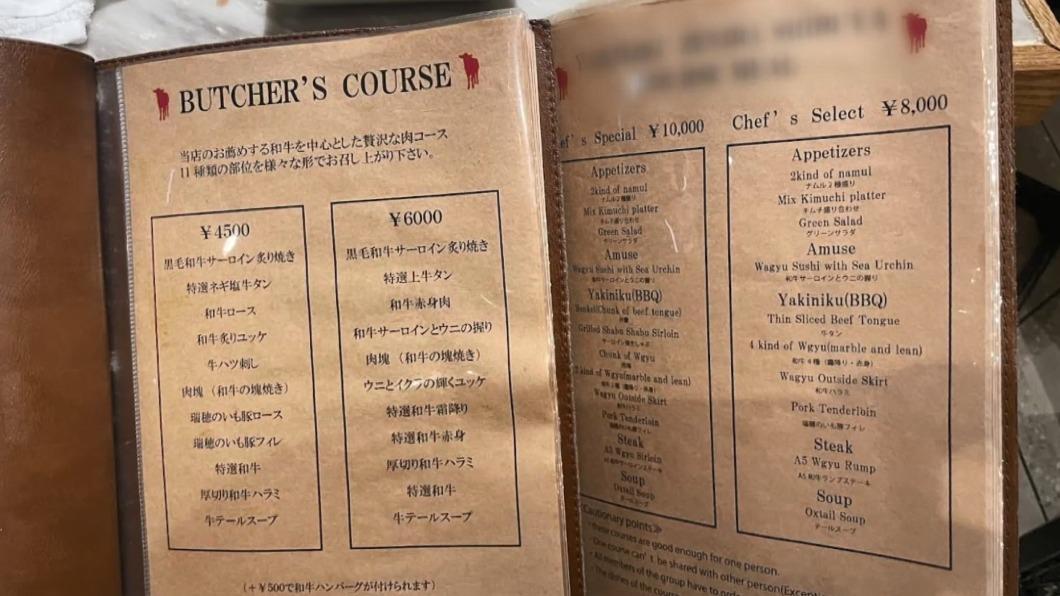 BUTCHER'S COURSE
当店のお薦めする和牛を中心とした贅沢な肉コース
11種類の部位を様々な形でお召し上がり下さい。
￥4500
黒毛和牛サーロイン炙り焼き
特選ネギ塩牛タン
和牛ロース
和牛炙りユッケ
牛ハツ刺し
肉塊（和牛の塊焼き）
瑞穂のいも豚ロース
瑞穂のいも豚フィレ
特選和牛
厚切り和牛ハラミ
牛テールスープ
￥6000
黒毛和牛サーロイン炙り焼き
特選上牛タン
和牛赤身肉
和牛サーロインとウニの握り
肉塊（和牛の塊焼き）
ウニとイクラの輝くユッケ
特選和牛霜降り
特選和牛赤身
厚切り和牛ハラミ
特選和牛
牛テールスープ
（＋￥500で和牛ハンバーグが付けられます）
ef's Special ￥10,000
Appetizers
2kind of namul
ナムル2種盛り
Mix Kimuchi platter
キムチ盛り合わせ
Green Salad
グリーンサラダ
Amuse
Wagyu Sushi with Sea Urchin
和牛サーロインとウニの握り
Yakiniku(BBQ)
(Chunk of beef tongue)
Grilled Shabu Shabu Sirloin
Chunk of Wgyu
2 kind of Wgyu(marble and lean)
Wagyu Outside Skirt
和牛ハラミ
Pork Tenderloin
瑞穂のいも豚フィレ
Steak
A5 Wgyu Sirloin
A5和牛サーロインステーキ
Soup
Oxtail Soup
テールスープ
Chef's Select ￥8,000
Appetizers
2kind of namul
ナムル2種盛り
Mix Kimuchi platter
キムチ盛り合わせ
Green Salad
グリーンサラダ
Amuse
Wagyu Sushi with Sea Urchin
和牛サーロインとウニの握り
Yakiniku(BBQ)
Thin Sliced Beef Tongue
牛タン
4 kind of Wgyu(marble and lean)
和牛4種（霜降り・赤身）
Wagyu Outside Skirt
和牛ハラミ
Pork Tenderloin
瑞穂のいも豚フィレ
Steak
A5 Wgyu Rump
A5和牛ランプステーキ
Soup
Oxtail Soup
テールスープ
Cautionary points≫
these courses are good enough for one person.
One course can't be shared with other person(Excepti
All members of the group have to orde
The dishes of the cours